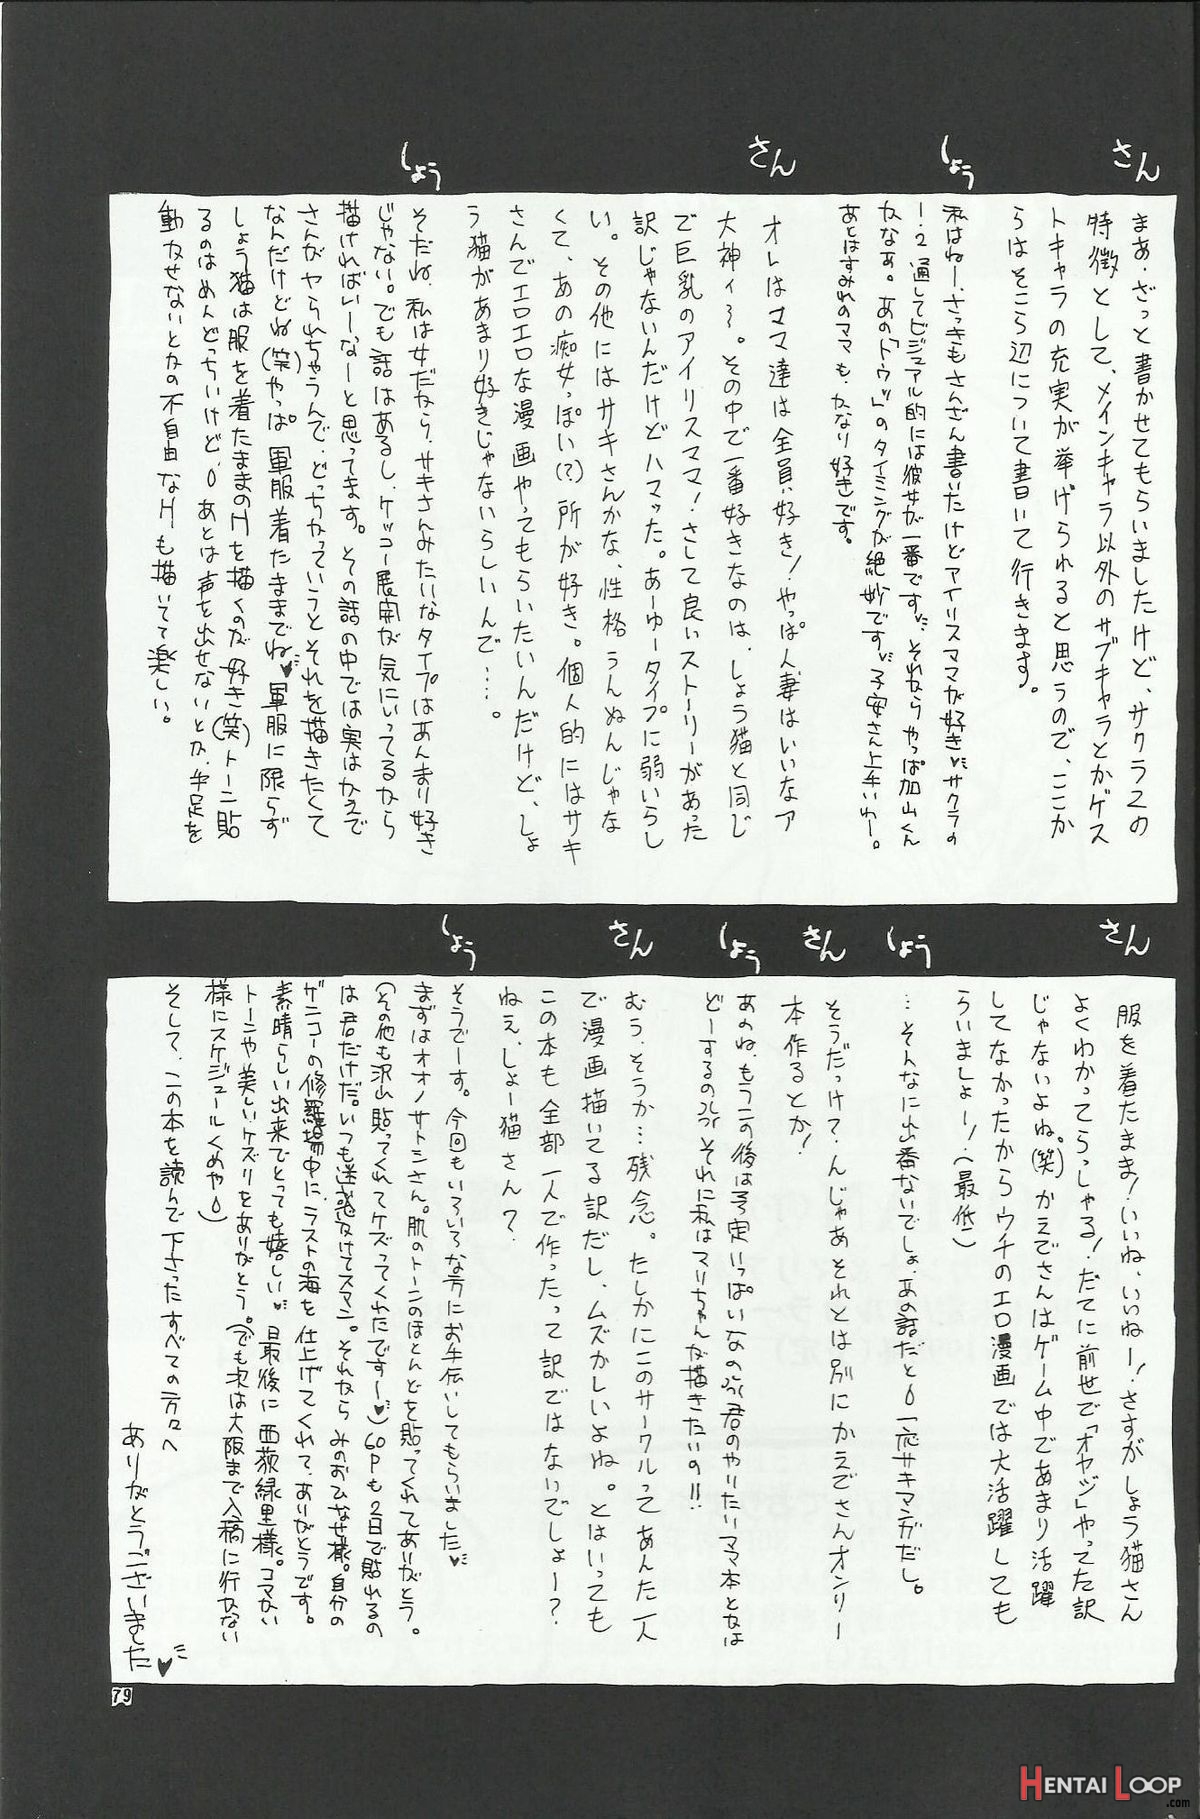 さん
まあ、ざっと書かせてもらいましたけど、サクラ2の
特徴として、メインキャラ以外のサブキャラとかゲス
トキャラの充実が挙げられると思うので、ここか
らはそこら辺について書いて行きます。
しょう
私はねー、さっきもさんざん書いたけどアイリスママが好き♥サクラの
1・2通してビジュアル的には彼女が一番です♥それならやっぱ加山くん
かなあ。あの「トウッ」のタイミングが絶妙です♥子安さん上手いわー。
あとはすみれのママも、かなり好きです。
さん
オレはママ達は全員好き!やっぱ人妻はいいなァ
大神ィ〜。その中で一番好きなのは、しょう猫と同じ
で巨乳のアイリスママ!さして良いストーリーがあった
訳じゃないんだけどハマった。あーゆータイプに弱いらし
い。その他にはサキさんかな、性格うんぬんじゃな
くて、あの痴女っぽい(?)所が好き。個人的にはサキ
さんでエロエロな漫画やってもらいたいんだけど、しょ
う猫があまり好きじゃないらしいんで…。
しょう
そだね、私は女だから、サキさんみたいなタイプはあんまり好き
じゃない。でも話はあるし、ケッコー展開が気にいってるなら
描ければいーなーと思ってます。その話の中では実はかえで
さんがヤられちゃうんで、どっちかっていうとそれを描きたくて
なんだけどね(笑)やっぱ軍服着たままでね♥軍服に限らず
しょう猫は服を着たままのHを描くのが好き(笑)トーン貼
るのはめんどっちいけど、あとは声を出せないとか、手足を
動かせないとかの不自由なHも描いてて楽しい。
さん
服を着たまま!いいね、いいねー!さすがしょう猫さん
よくわかってらっしゃる!だてに前世で「オヤジ」やってた訳
じゃないよね。(笑)かえでさんはゲーム中であまり活躍
してなかったからウチのエロ漫画では大活躍しても
らいましょー!(最低)
しょう
…そんなに出番ないでしょ、あの話だと 一応サキマンガだし。
さん
そうだっけ?んじゃあそれとは別にかえでさんオンリー
本作るとか!
しょう
あのね、もうこの後は予定いっぱいなの 君のやりたいママ本とかは
どーするの それに私はマリちゃんが描きたいの!!
さん
むう、そうか…残念。たしかにこのサークルってあんた一人
で漫画描いてる訳だし、ムズかしいよね。とはいっても
この本も全部一人で作ったって訳ではないでしょー?
ねえ、しょー猫さん?
しょう
そうでーす。今回もいろいろな方にお手伝いしてもらいました♥
まずはオオノサトシさん。肌のトーンのほとんどを貼ってくれてありがとう。
(その他も沢山貼ってくれてケズってくれたですー♥)60Pも2日で貼れるの
は君だけだ。いつも迷惑かけてスマン。それから みのおひなせ様。自分の
ザンコーの修羅場中に、ラストの海を 仕上げてくれて、ありがとうです。
素晴らしい出来でとっても嬉しい♥ 最後に 西荻緑里様。コマかい
トーンや美しいケズリをありがとう。(でも次は大阪まで入稿に行かない
様にスケジュールくめや)
そして、この本を読んで下さったすべての方々へ
ありがとうございました♥
79
HENTAI LOOP
.com